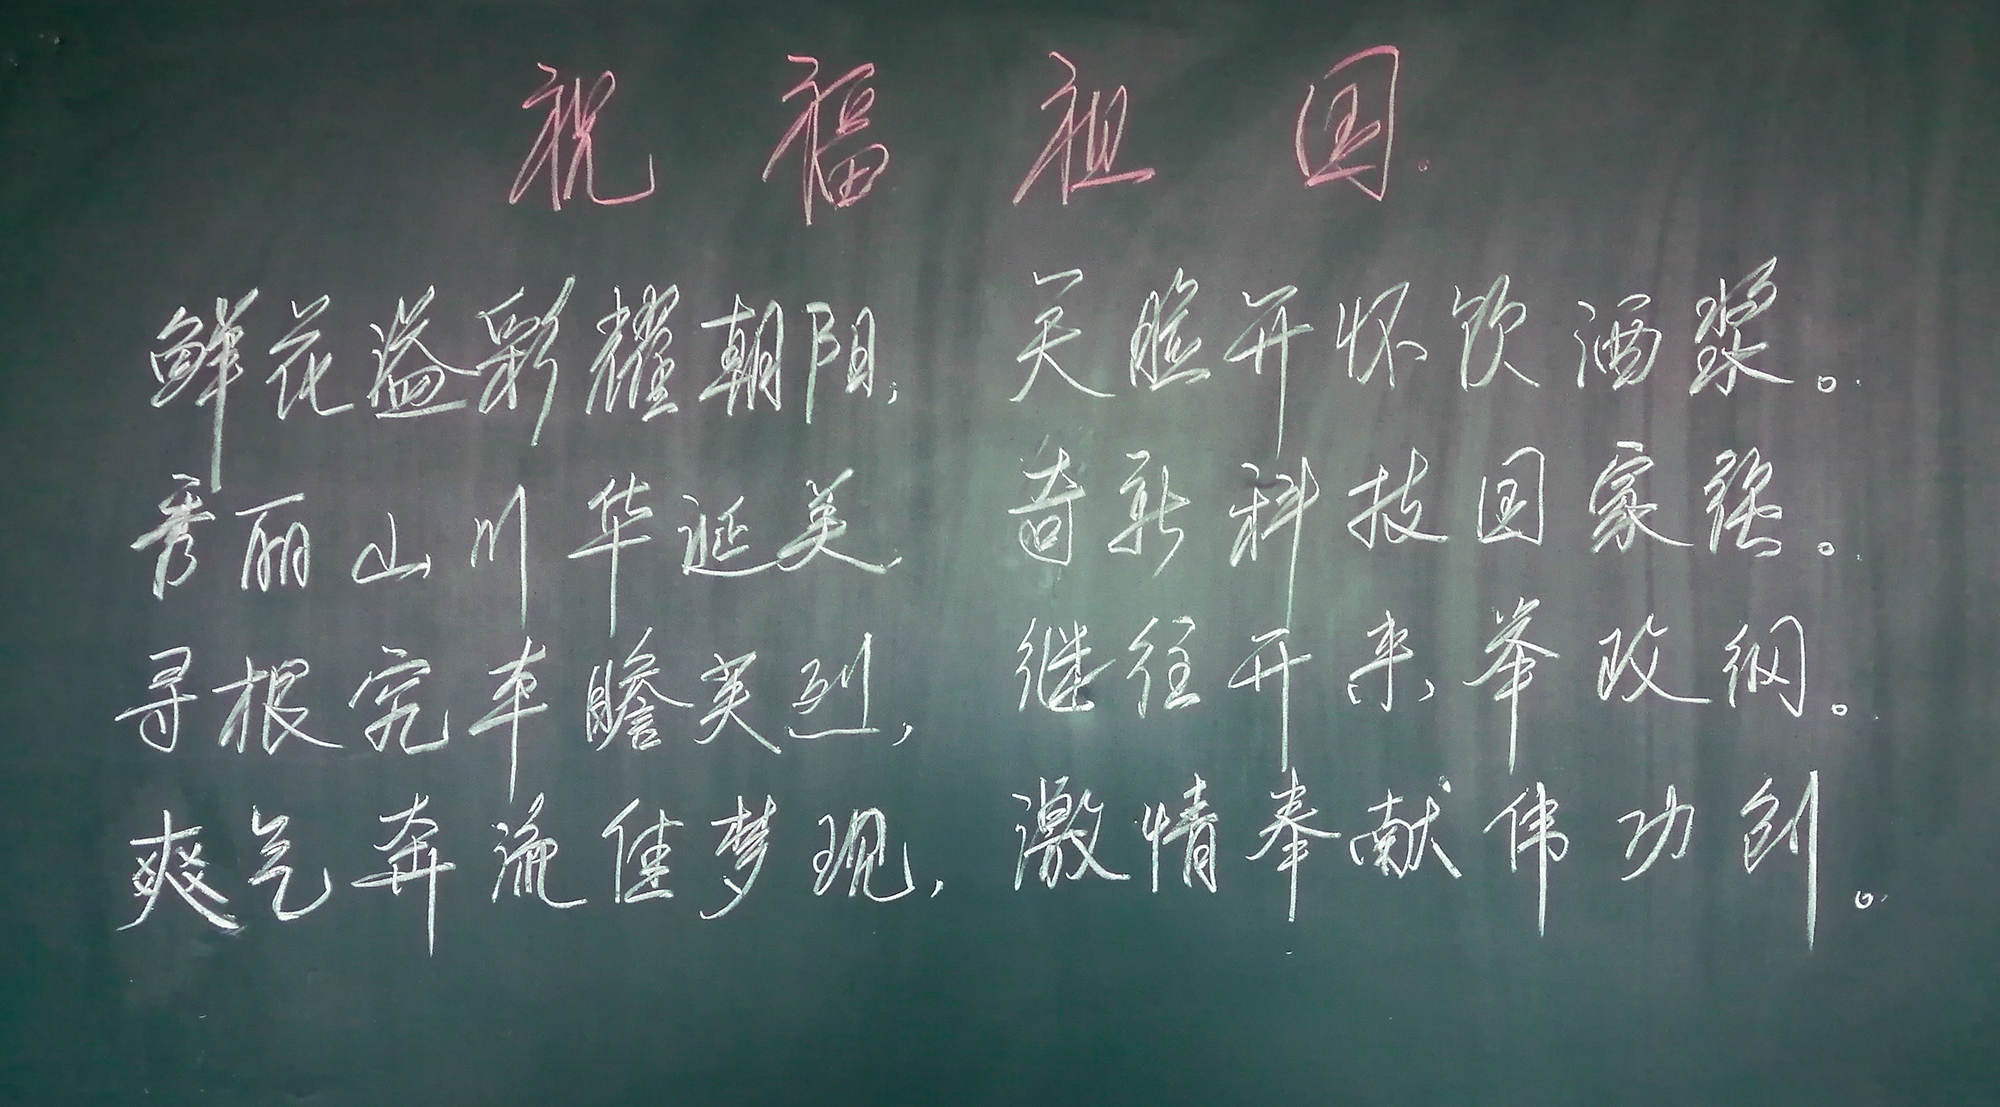 祝福祖国.
鲜花溢彩耀朝阳, 天胜开怀饮酒浆。
秀丽山川华诞美, 奇新科技国家强。
寻根究本瞻英烈, 继往开来举政纲。
爽气奔流佳梦现, 激情奉献伟功创。